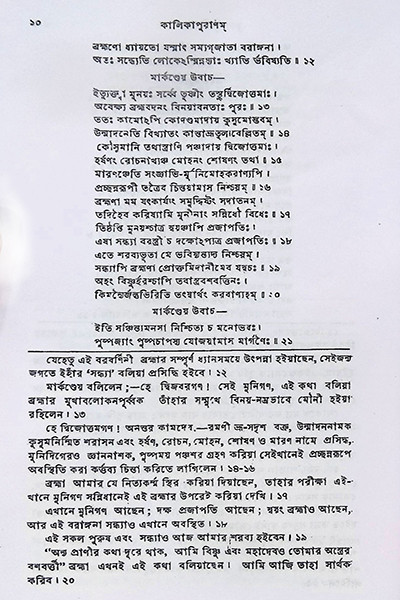 ১০ কালিকাপুরাণম্
ব্রহ্মণো ধ্যায়তো যস্মাৎ সম্যগ্‌জাতা বরাঙ্গনা।
অতঃ সন্ধ্যেতি লোকেঽস্মিন্নস্যাঃ খ্যাতি র্ভবিষ্যতি ॥ ১২
মার্কণ্ডেয় উবাচ—
ইত্যুক্ত্বা মুনয়ঃ সর্ব্বে তূষ্ণীং তস্থুর্দ্বিজোত্তমাঃ।
অবেক্ষ্য ব্রহ্মবদনং বিনয়াবনতাঃ পুরঃ॥ ১৩
ততঃ কামোঽপি কোদণ্ডমাদায় কুসুমোদ্ভবম্।
উন্মাদনেতি বিখ্যাতং কান্তাভ্রূতুল্যবেল্লিতম্॥ ১৪
কৌসুমানি তথাস্ত্রাণি পঞ্চাদায় দ্বিজোত্তমাঃ।
হর্ষণং রোচনাখ্যঞ্চ মোহনং শোষণং তথা॥ ১৫
মারণঞ্চেতি সংজ্ঞাভি-র্মুনিমোহকরাণ্যপি।
প্রচ্ছন্নরূপী তত্রৈব চিন্তয়ামাস নিশ্চয়ম্॥ ১৬
ব্রহ্মণা মম যৎকার্য্যং সমুদ্দিষ্টং সদাতনম্।
তদিহৈব করিষ্যামি মুনীনাং সন্নিধৌ বিধেঃ॥ ১৭
তিষ্ঠন্তি মুনয়শ্চাত্র স্বয়ঞ্চাপি প্রজাপতিঃ।
এষা সন্ধ্যা বরস্ত্রী চ দক্ষোঽপ্যত্র প্রজাপতিঃ॥ ১৮
এতে শরব্যভূতা মে ভবিষ্যন্ত্যদ্য নিশ্চয়ম্।
সন্ধ্যাপি ব্রহ্মণা প্রোক্তমিদানীমেব যদ্বচঃ॥ ১৯
অহং বিষ্ণুর্হরশ্চাপি তবাস্ত্রবশবর্ত্তিনঃ।
কিমন্যৈর্জন্তুভিরিতি তৎসার্থং করবাণ্যহম্॥ ২০
মার্কণ্ডেয় উবাচ—
ইতি সঞ্চিন্ত্যমনসা নিশ্চিত্য চ মনোভবঃ।
পুষ্পজ্যাং পুষ্পচাপস্য যোজয়ামাস মার্গণৈঃ॥ ২১
যেহেতু এই বরবর্ণিনী ব্রহ্মার সম্পূর্ণ ধ্যানসময়ে উৎপন্না হইয়াছেন, সেইজন্য
জগতে ইহাঁর ‘সন্ধ্যা’ বলিয়া প্রসিদ্ধি হইবে। ১২
মার্কণ্ডেয় বলিলেন;—হে দ্বিজবরগণ! সেই মুনিগণ, এই কথা বলিয়া
ব্রহ্মার মুখাবলোকনপূর্ব্বক তাঁহার সম্মুখে বিনয়-নম্রভাবে মৌনী হইয়া
রহিলেন। ১৩
হে দ্বিজোত্তমগণ! অনন্তর কামদেব,—রমণী ভ্রূ-সদৃশ বক্র, উন্মাদননামক
কুসুমনির্ম্মিত শরাসন এবং হর্ষণ, রোচন, মোহন, শোষণ ও মারণ নামে প্রসিদ্ধ,
মুনিদিগেরও জ্ঞাননাশক, পুষ্পময় পঞ্চশর গ্রহণ করিয়া সেইখানেই প্রচ্ছন্নরূপে
অবস্থিতি করা কর্ত্তব্য চিন্তা করিতে লাগিলেন। ১৪-১৬
ব্রহ্মা আমার যে নিত্যকর্ম্ম স্থির করিয়া দিয়াছেন, তাহার পরীক্ষা এই-
খানে মুনিগণ সন্নিধানেই এই ব্রহ্মার উপরেই করিয়া দেখি। ১৭
এখানে মুনিগণ আছেন; দক্ষ প্রজাপতি আছেন; স্বয়ং ব্রহ্মাও আছেন,
আর এই বরাঙ্গনা সন্ধ্যাও এখানে অবস্থিত। ১৮
এই সকল পুরুষ এবং সন্ধ্যাও আজ আমার শরব্য হইবেন। ১৯
“অন্য প্রাণীর কথা দূরে থাক, আমি বিষ্ণু এবং মহাদেবও তোমার অস্ত্রের
বশবর্ত্তী” ব্রহ্মা এখনই এই কথা বলিয়াছেন। আমি আজি তাহা সার্থক
করিব। ২০